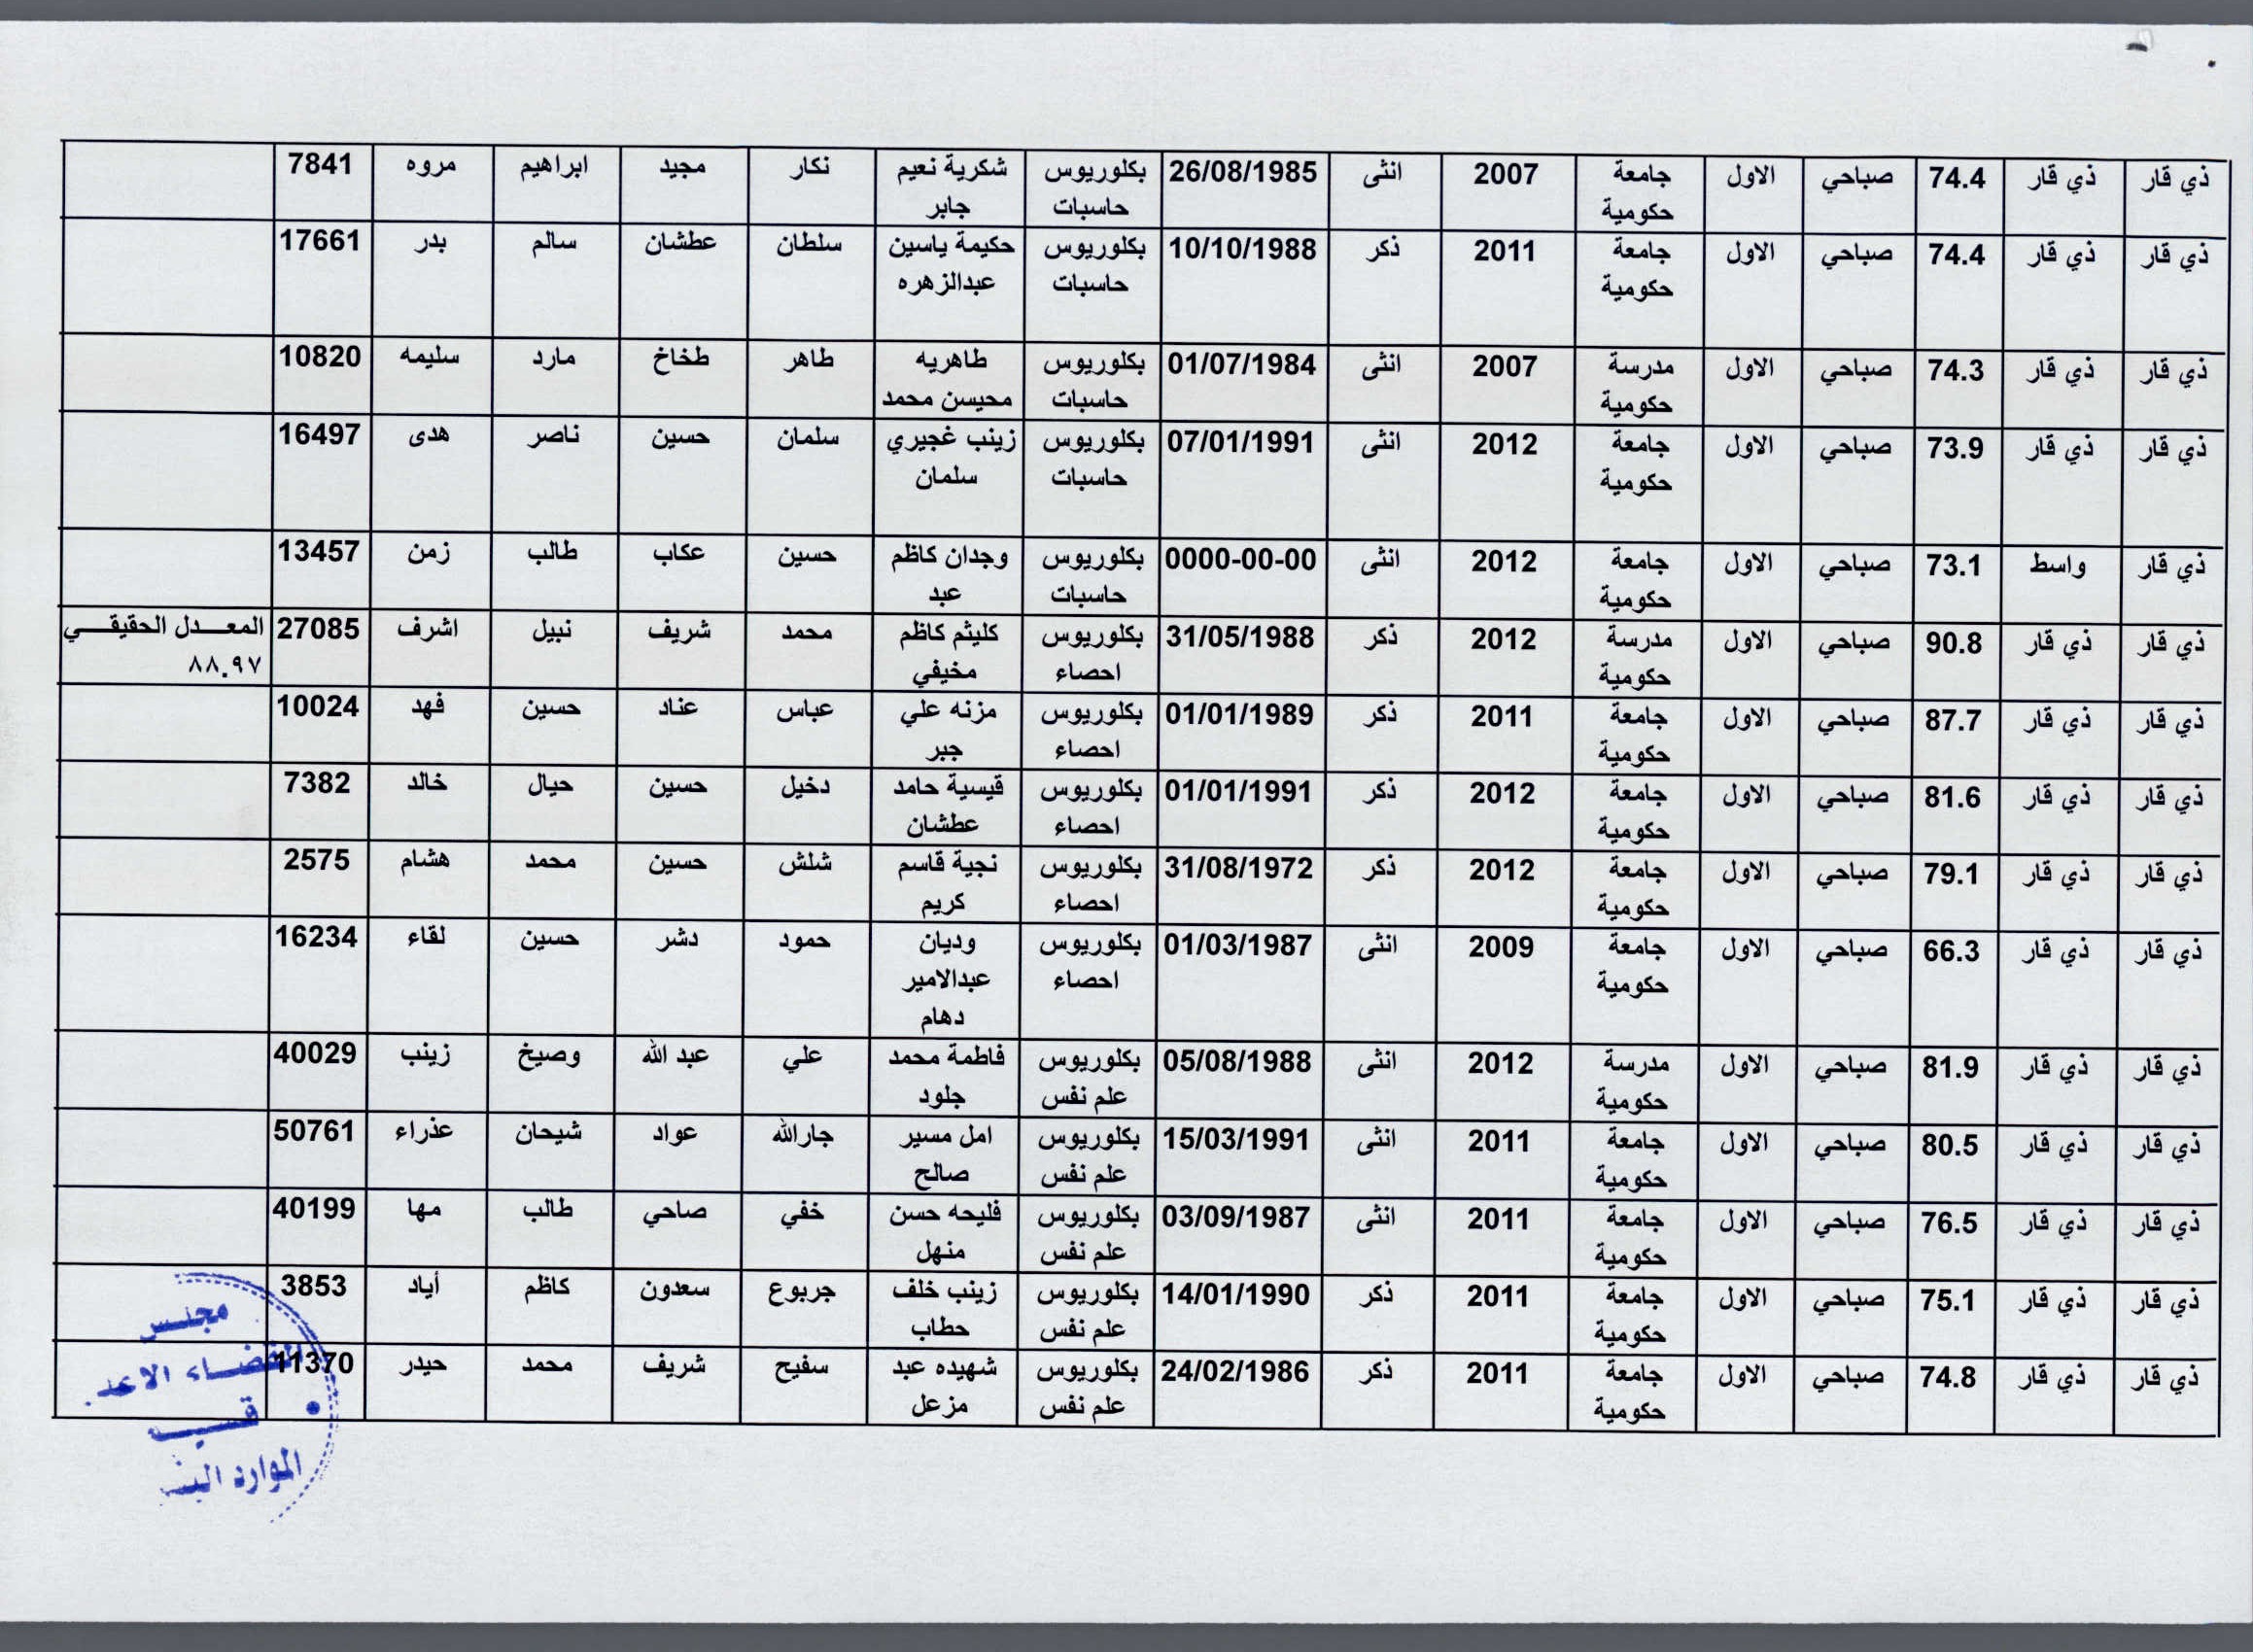 7841 مروه ابراهيم مجيد نكار شكرية نعيم بكلوريوس 26/08/1985 انثى 2007 جامعة الاول صباحي 74.4 ذي قار ذي قار
جابر حاسبات حكومية
17661 بدر سالم عطشان سلطان حكيمة ياسين بكلوريوس 10/10/1988 ذكر 2011 جامعة الاول صباحي 74.4 ذي قار ذي قار
عبدالزهره حاسبات حكومية
10820 سليمه مارد طخاخ طاهر طاهريه بكلوريوس 01/07/1984 انثى 2007 مدرسة الاول صباحي 74.3 ذي قار ذي قار
محيسن محمد حاسبات حكومية
16497 هدى ناصر حسين سلمان زينب غجيري بكلوريوس 07/01/1991 انثى 2012 جامعة الاول صباحي 73.9 ذي قار ذي قار
سلمان حاسبات حكومية
13457 زمن طالب عكاب حسين وجدان كاظم بكلوريوس 0000-00-00 انثى 2012 جامعة الاول صباحي 73.1 واسط ذي قار
عبد حاسبات حكومية
المعدل الحقيقي 27085 اشرف نبيل شريف محمد كليثم كاظم بكلوريوس 31/05/1988 ذكر 2012 مدرسة الاول صباحي 90.8 ذي قار ذي قار
٨٨.٩٧ مخيفي احصاء حكومية
10024 فهد حسين عناد عباس مزنه علي بكلوريوس 01/01/1989 ذكر 2011 جامعة الاول صباحي 87.7 ذي قار ذي قار
جبر احصاء حكومية
7382 خالد حيال حسين دخيل قيسية حامد بكلوريوس 01/01/1991 ذكر 2012 جامعة الاول صباحي 81.6 ذي قار ذي قار
عطشان احصاء حكومية
2575 هشام محمد حسين شلش نجية قاسم بكلوريوس 31/08/1972 ذكر 2012 جامعة الاول صباحي 79.1 ذي قار ذي قار
كريم احصاء حكومية
16234 لقاء حسين دشر حمود وديان بكلوريوس 01/03/1987 انثى 2009 جامعة الاول صباحي 66.3 ذي قار ذي قار
عبدالامير احصاء حكومية
دهام
40029 زينب وصيخ عبد الله علي فاطمة محمد بكلوريوس 05/08/1988 انثى 2012 مدرسة الاول صباحي 81.9 ذي قار ذي قار
جلود علم نفس حكومية
50761 عذراء شيحان عواد جارالله امل مسير بكلوريوس 15/03/1991 انثى 2011 جامعة الاول صباحي 80.5 ذي قار ذي قار
صالح علم نفس حكومية
40199 مها طالب صاحي خفي فليحه حسن بكلوريوس 03/09/1987 انثى 2011 جامعة الاول صباحي 76.5 ذي قار ذي قار
منهل علم نفس حكومية
3853 أياد كاظم سعدون جربوع زينب خلف بكلوريوس 14/01/1990 ذكر 2011 جامعة الاول صباحي 75.1 ذي قار ذي قار
حطاب علم نفس حكومية
41370 حيدر محمد شريف سفيح شهيده عبد بكلوريوس 24/02/1986 ذكر 2011 جامعة الاول صباحي 74.8 ذي قار ذي قار
مزعل علم نفس حكومية
مجلس
القضاء
الموارد